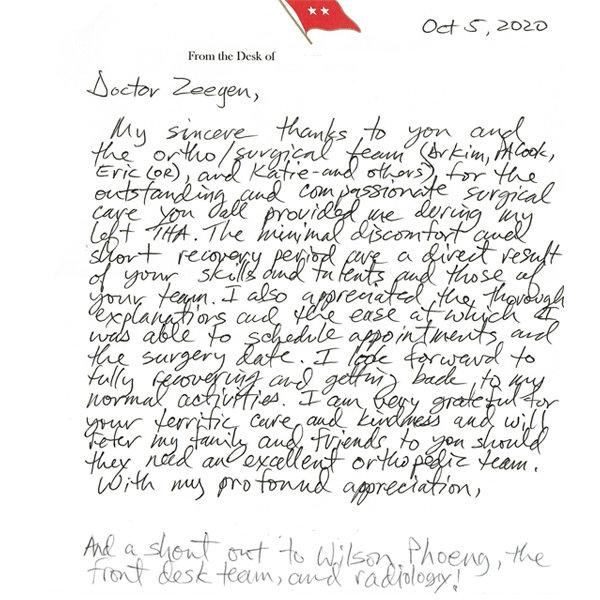 Oct 5, 2020
From the Desk of
Doctor Zeegen,
My sincere thanks to you and
the ortho/surgical team (Dr Kim, PA Cook,
Eric (OR), and Katie-and others), for the
outstanding and compassionate surgical
care you all provided me during my
left THA. The minimal discomfort and
short recovery period are a direct result
of your skills and talents and those of
your team. I also appreciated the thorough
explanations and the ease at which I
was able to schedule appointments and
the surgery date. I look forward to
fully recovering and getting back to my
normal activities. I am very grateful for
your terrific care and kindness and will
refer my family and friends to you should
they need an excellent orthopedic team.
With my profound appreciation,
And a shout out to Wilson, Phoeng, the
front desk team, and radiology!